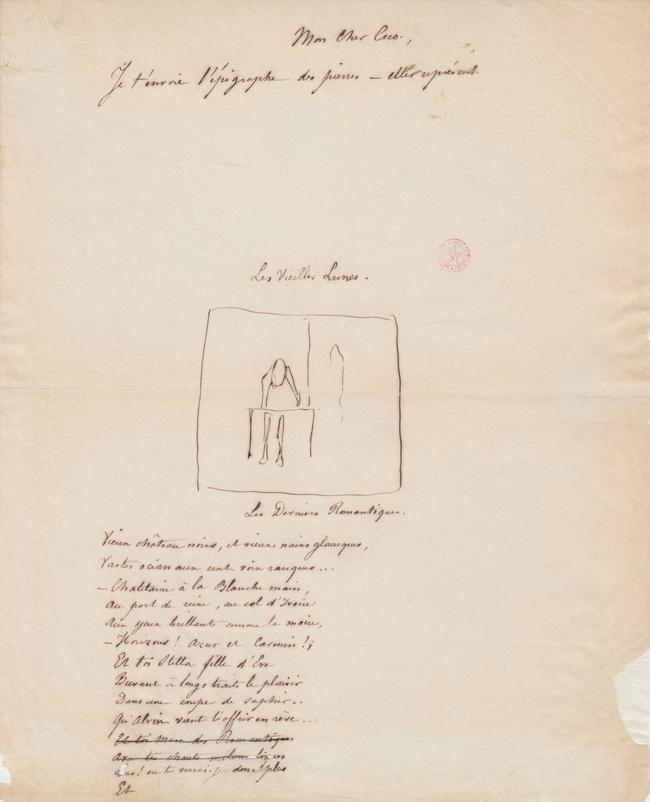 Mon Cher Coco.,
Je t'envoie l'épigraphe des pierres — elles représent.
Les Vieilles Lunes.
Les Derniers Romantiques.
Vieux château noirs, et vieux nains glauques,
Vastes océan aux cent voix rauques...
— Chatitaine à la Blanche main,
Au port de reine, au col d'Ivoire
Aux yeux brillants comme la moire,
— Horizons! Azur et Carmin!
Et toi Stella fille d'Eve
Buvant à longs traits le plaisir
Dans une coupe de saphir..
Qu'Alvin vient t'offrir en rêve...
Et toi Muse des Romantiques
Avec tes chants
donc plus
Et